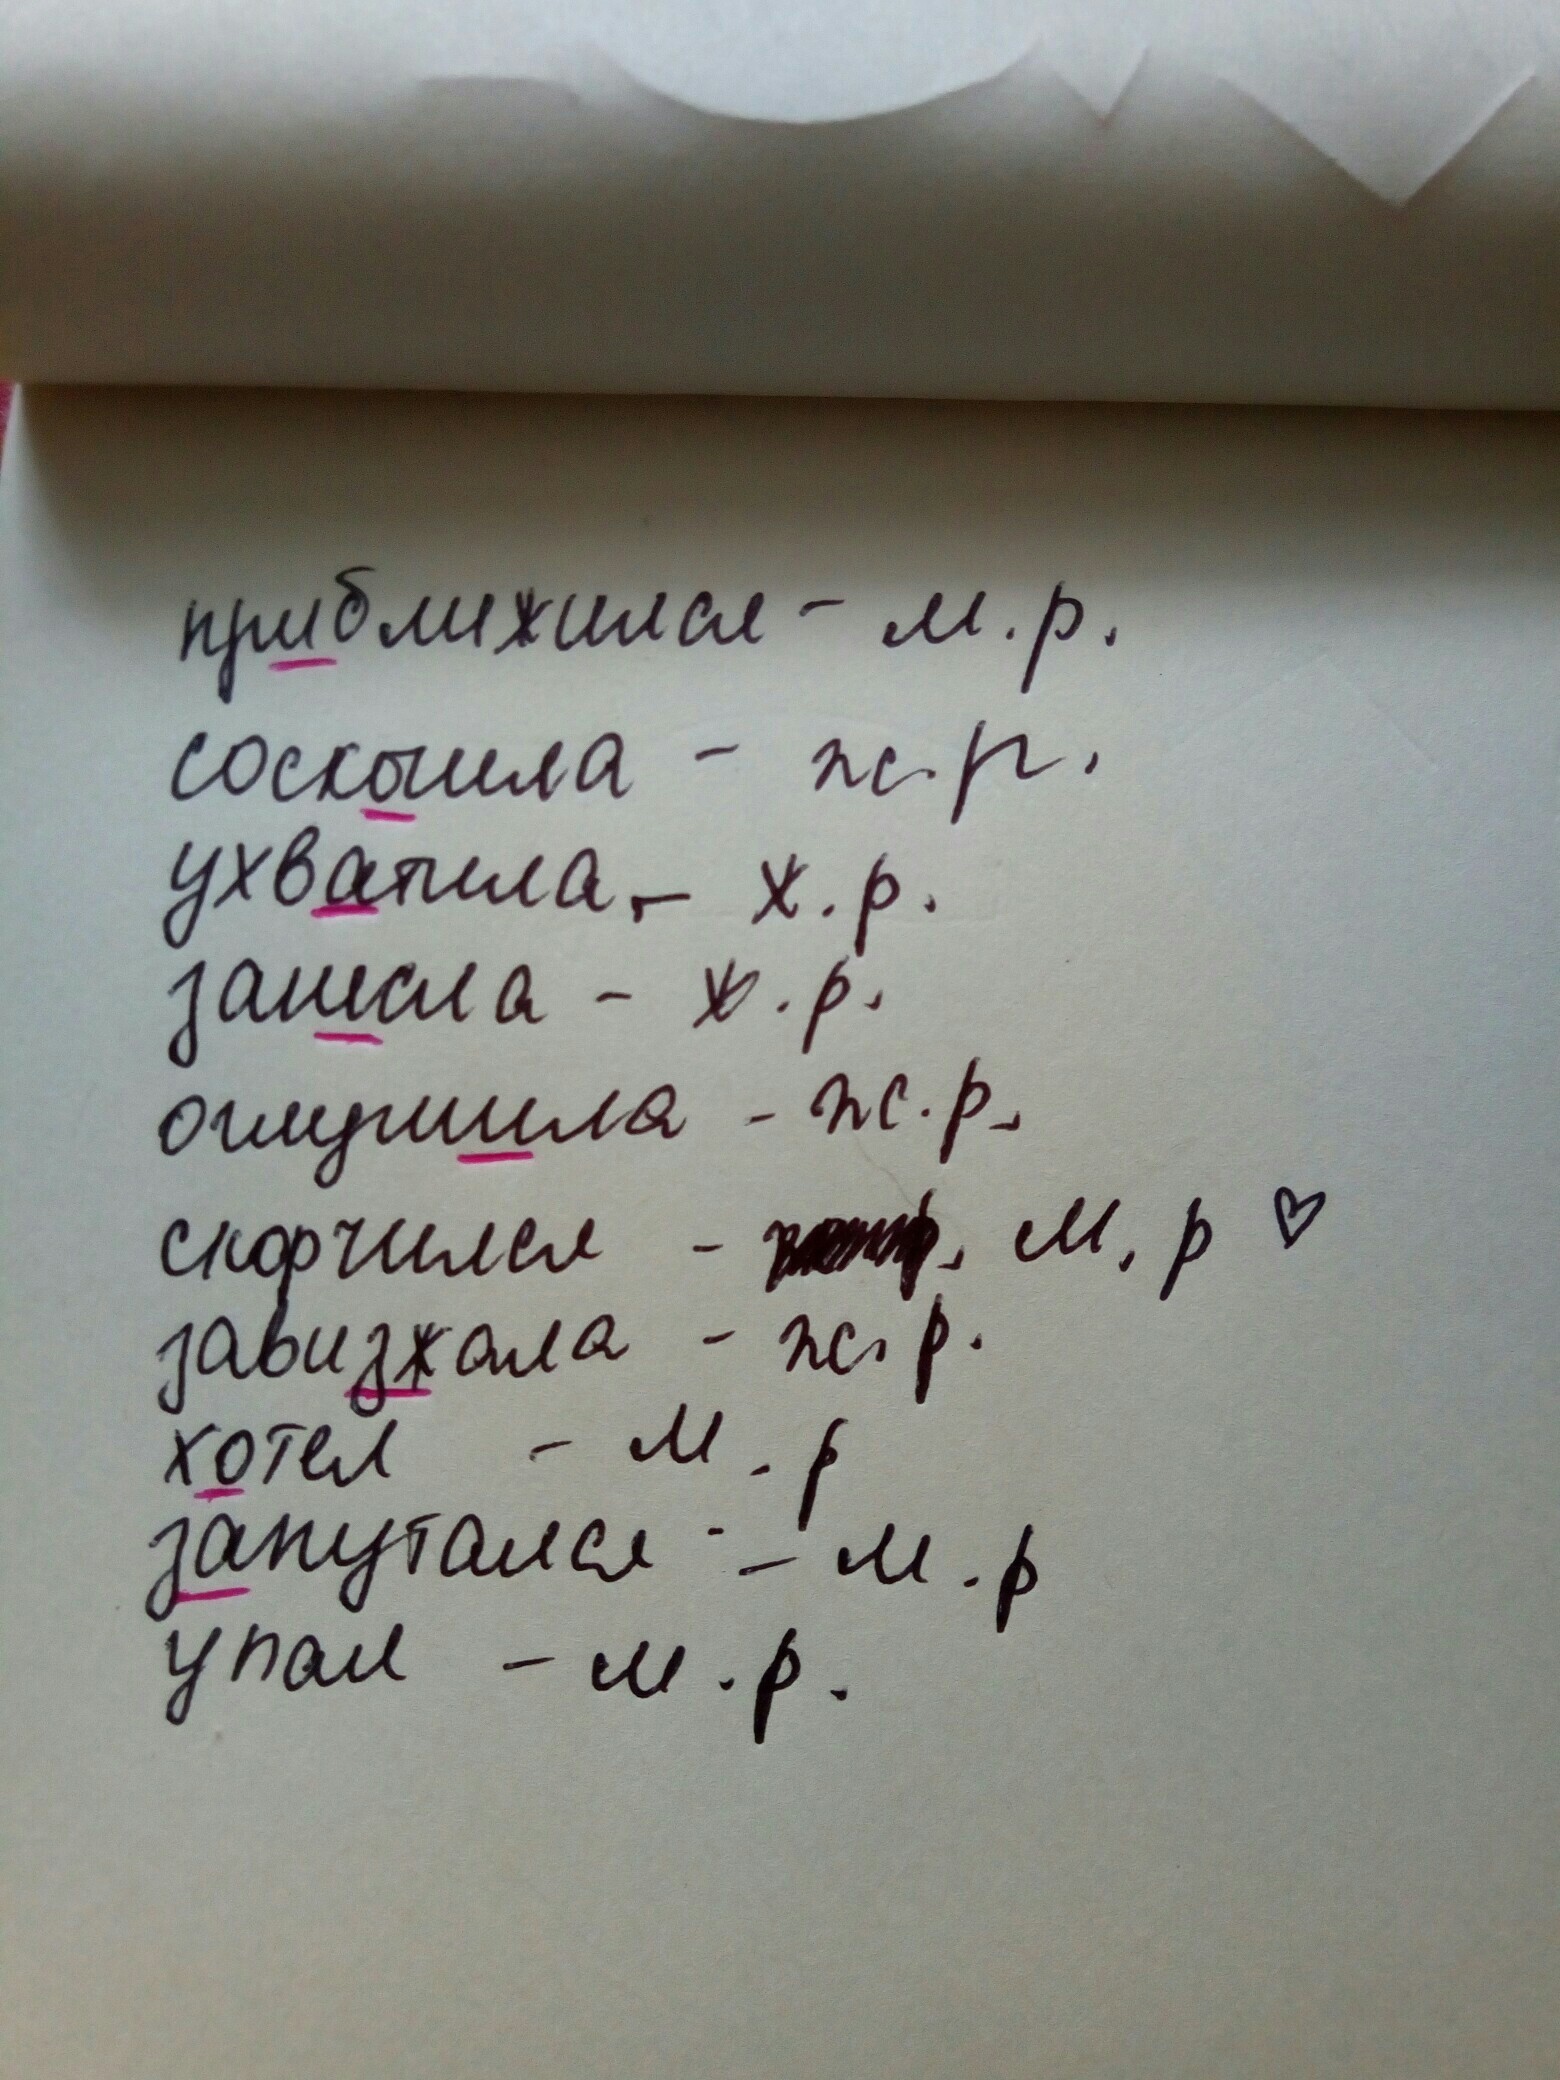 приближился - м.р.
соскочила - ж.р.
ухватила, - ж.р.
зашсла - ж.р.
оглушила - ж.р.
скорчился - м.р ♡
завизжала - ж.р.
хотел - м.р
запутался - - м.р
упал - м.р.